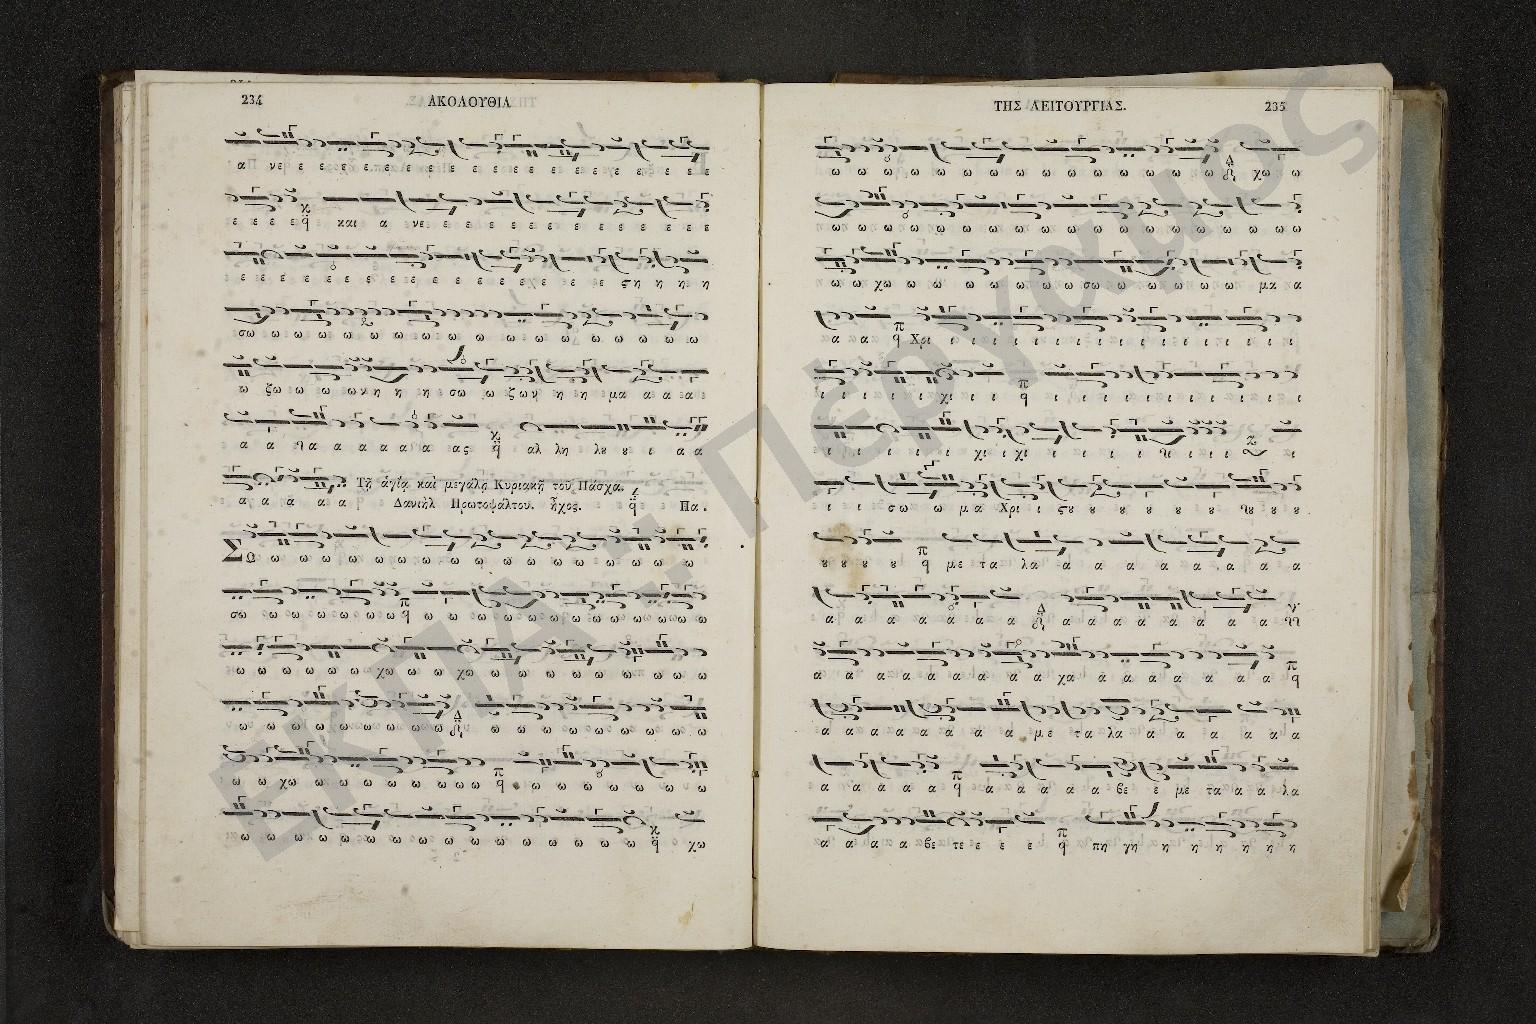 234 ΑΚΟΛΟΥΘΙΑ
α νε ε ε ε ε ε ε ε ε ε ε ε ε ε ε ε ε ε ε
ε ε ε ε και α νε ε ε ε ε ε ε ε ε ε ε ε ε
ε ε ε ε ε ε ε ε ε ε ε ε ε ε χε ε ε ϛη η η η
σω ω ω ω ω ω ω ω ω ω ω ω ω ω ω ω ω ω
ω ζω ω ω ω νη η η σω ω ζων η η μα α α α
α α α α α α α α ας αλ λη λου ου ι α α
α α α α α Τῇ ἁγίᾳ καὶ μεγάλῃ Κυριακῇ τοῦ Πάσχα.
Δανιὴλ Πρωτοψάλτου. ἦχος. Πα.
Σω ω ω ω ω ω ω ω ω ω ω ω ω ω ω ω ω
σω ω ω ω ω ω ω ω ω ω ω ω ω ω ω ω ω ω ω ω
ω ω ω ω ω ω χω ω ω χω ω ω ω ω ω ω ω ω ω
ω ω ω ω ω ω ω ω ω ω ω ω ω ω ω ω ω ω
ω ω χω ω ω ω ω ω ω ω ω ω ω ω ω ω ω ω ω
ω ω ω ω ω ω ω ω ω ω ω ω ω ω ω ω χω
ΤΗΣ ΛΕΙΤΟΥΡΓΙΑΣ. 235
ω ω ω ω ω ω ω ω ω ω ω ω ω ω ω χω ω
ω ω ω ω ω ω ω ω ω ω ω ω ω ω ω ω ω ω
ω ω χω ω ω ω ω ω ω ω σω ω ω ω ω ω μα α
α α α Χρι ι ι ι ι ι ι ι ι ι ι ι ι ι ι
ι ι ι ι ι χι ι ι ι ι ι ι ι ι ι ι ι ι ι
ι ι ι ι ι ι χι ι χι ι ι ι ι ι ι ι ι ι
ι ι σω ω μα Χρι ι ϛου ου ου ου ου ου ου ου ου
ου ου ου ου με τα λα α α α α α α α α
α α α α α α α α α α α α α α α
α α α α α α α α α χα α α α α α α α
α α α α α α α α με τα λα α α α α α
α α α α α α α α α α βε ε με τα α α λα
α α α α βε τε ε ε ε πη γη η η η η η η